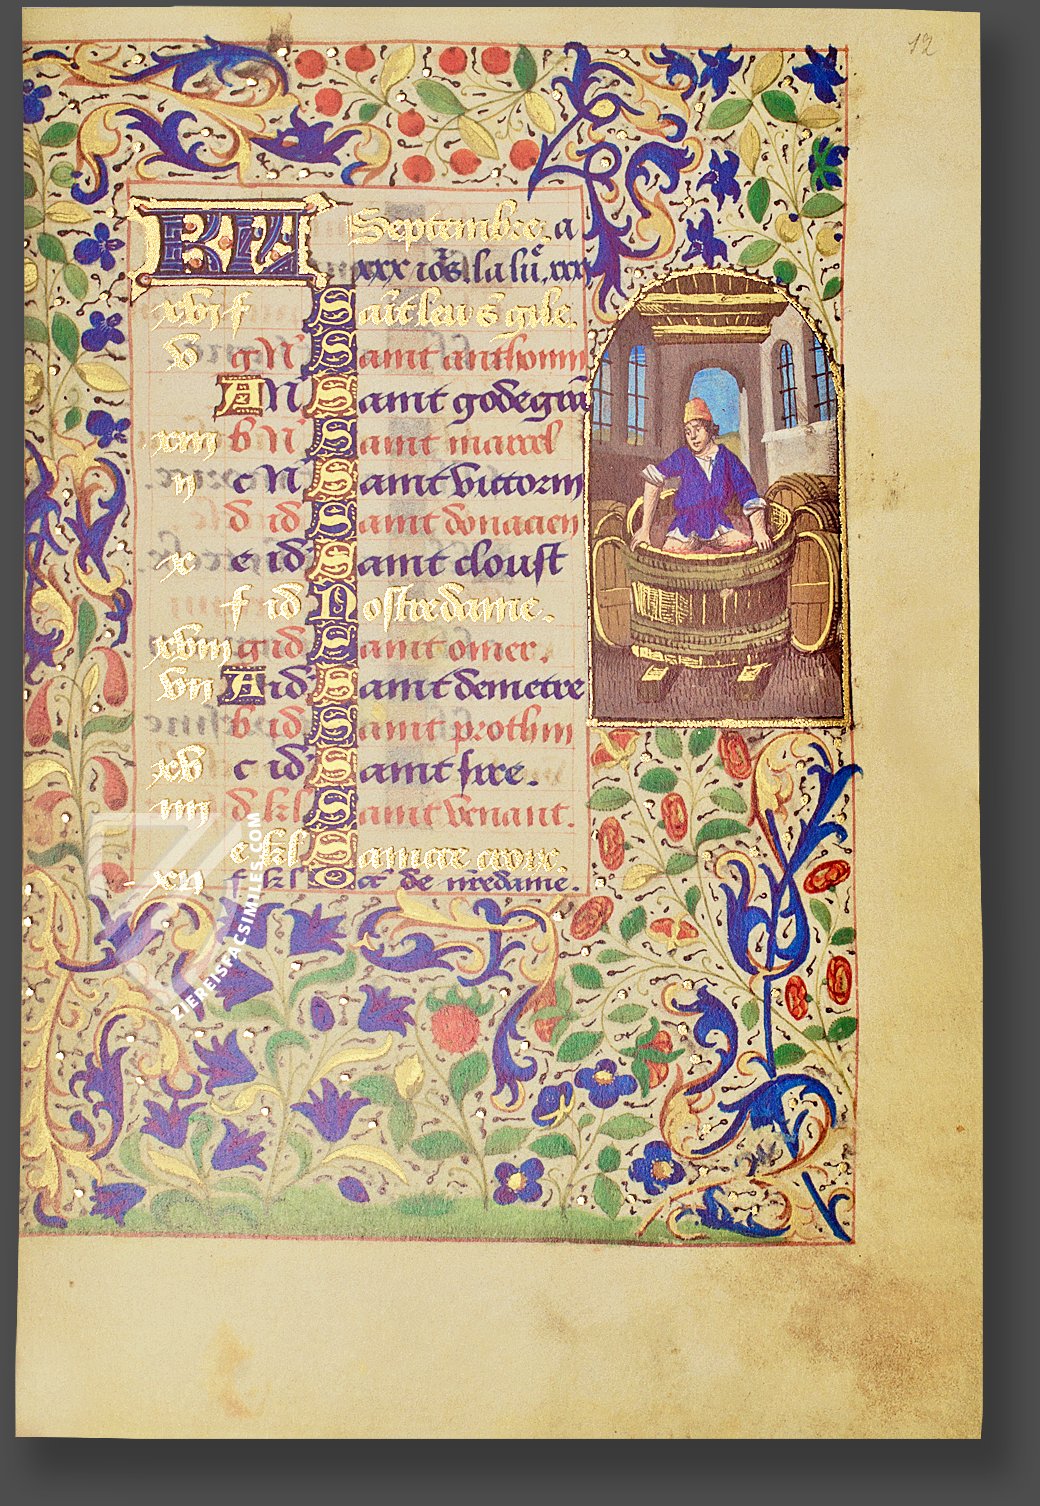 12
KL Septembre a
xxx iours la lu. xxx
xvi f Sait leu s gile.
v g N Saint anthonin
A N Saint godegra
xiii b N Saint marcel
ii c N Saint victorin
d id Saint donacien
x e id Saint cloust
f id Nostre dame.
xviii g id Saint omer.
vii A id Saint demetre
b id Saint prothin
xv c id Saint sire.
iiii d kl Saint venant.
e kl Saincte croix.
xii f kl Oct de nredame.
ZIEREISFACSIMILES.COM